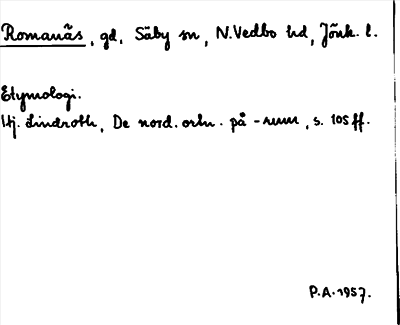 Romanäs, gd, Säby sn, N.Vedbo hd, Jönk. l.
Etymologi.
Hj. Lindroth, De nord. ortn. på -rum, s. 105 ff.
P.A. 1957.